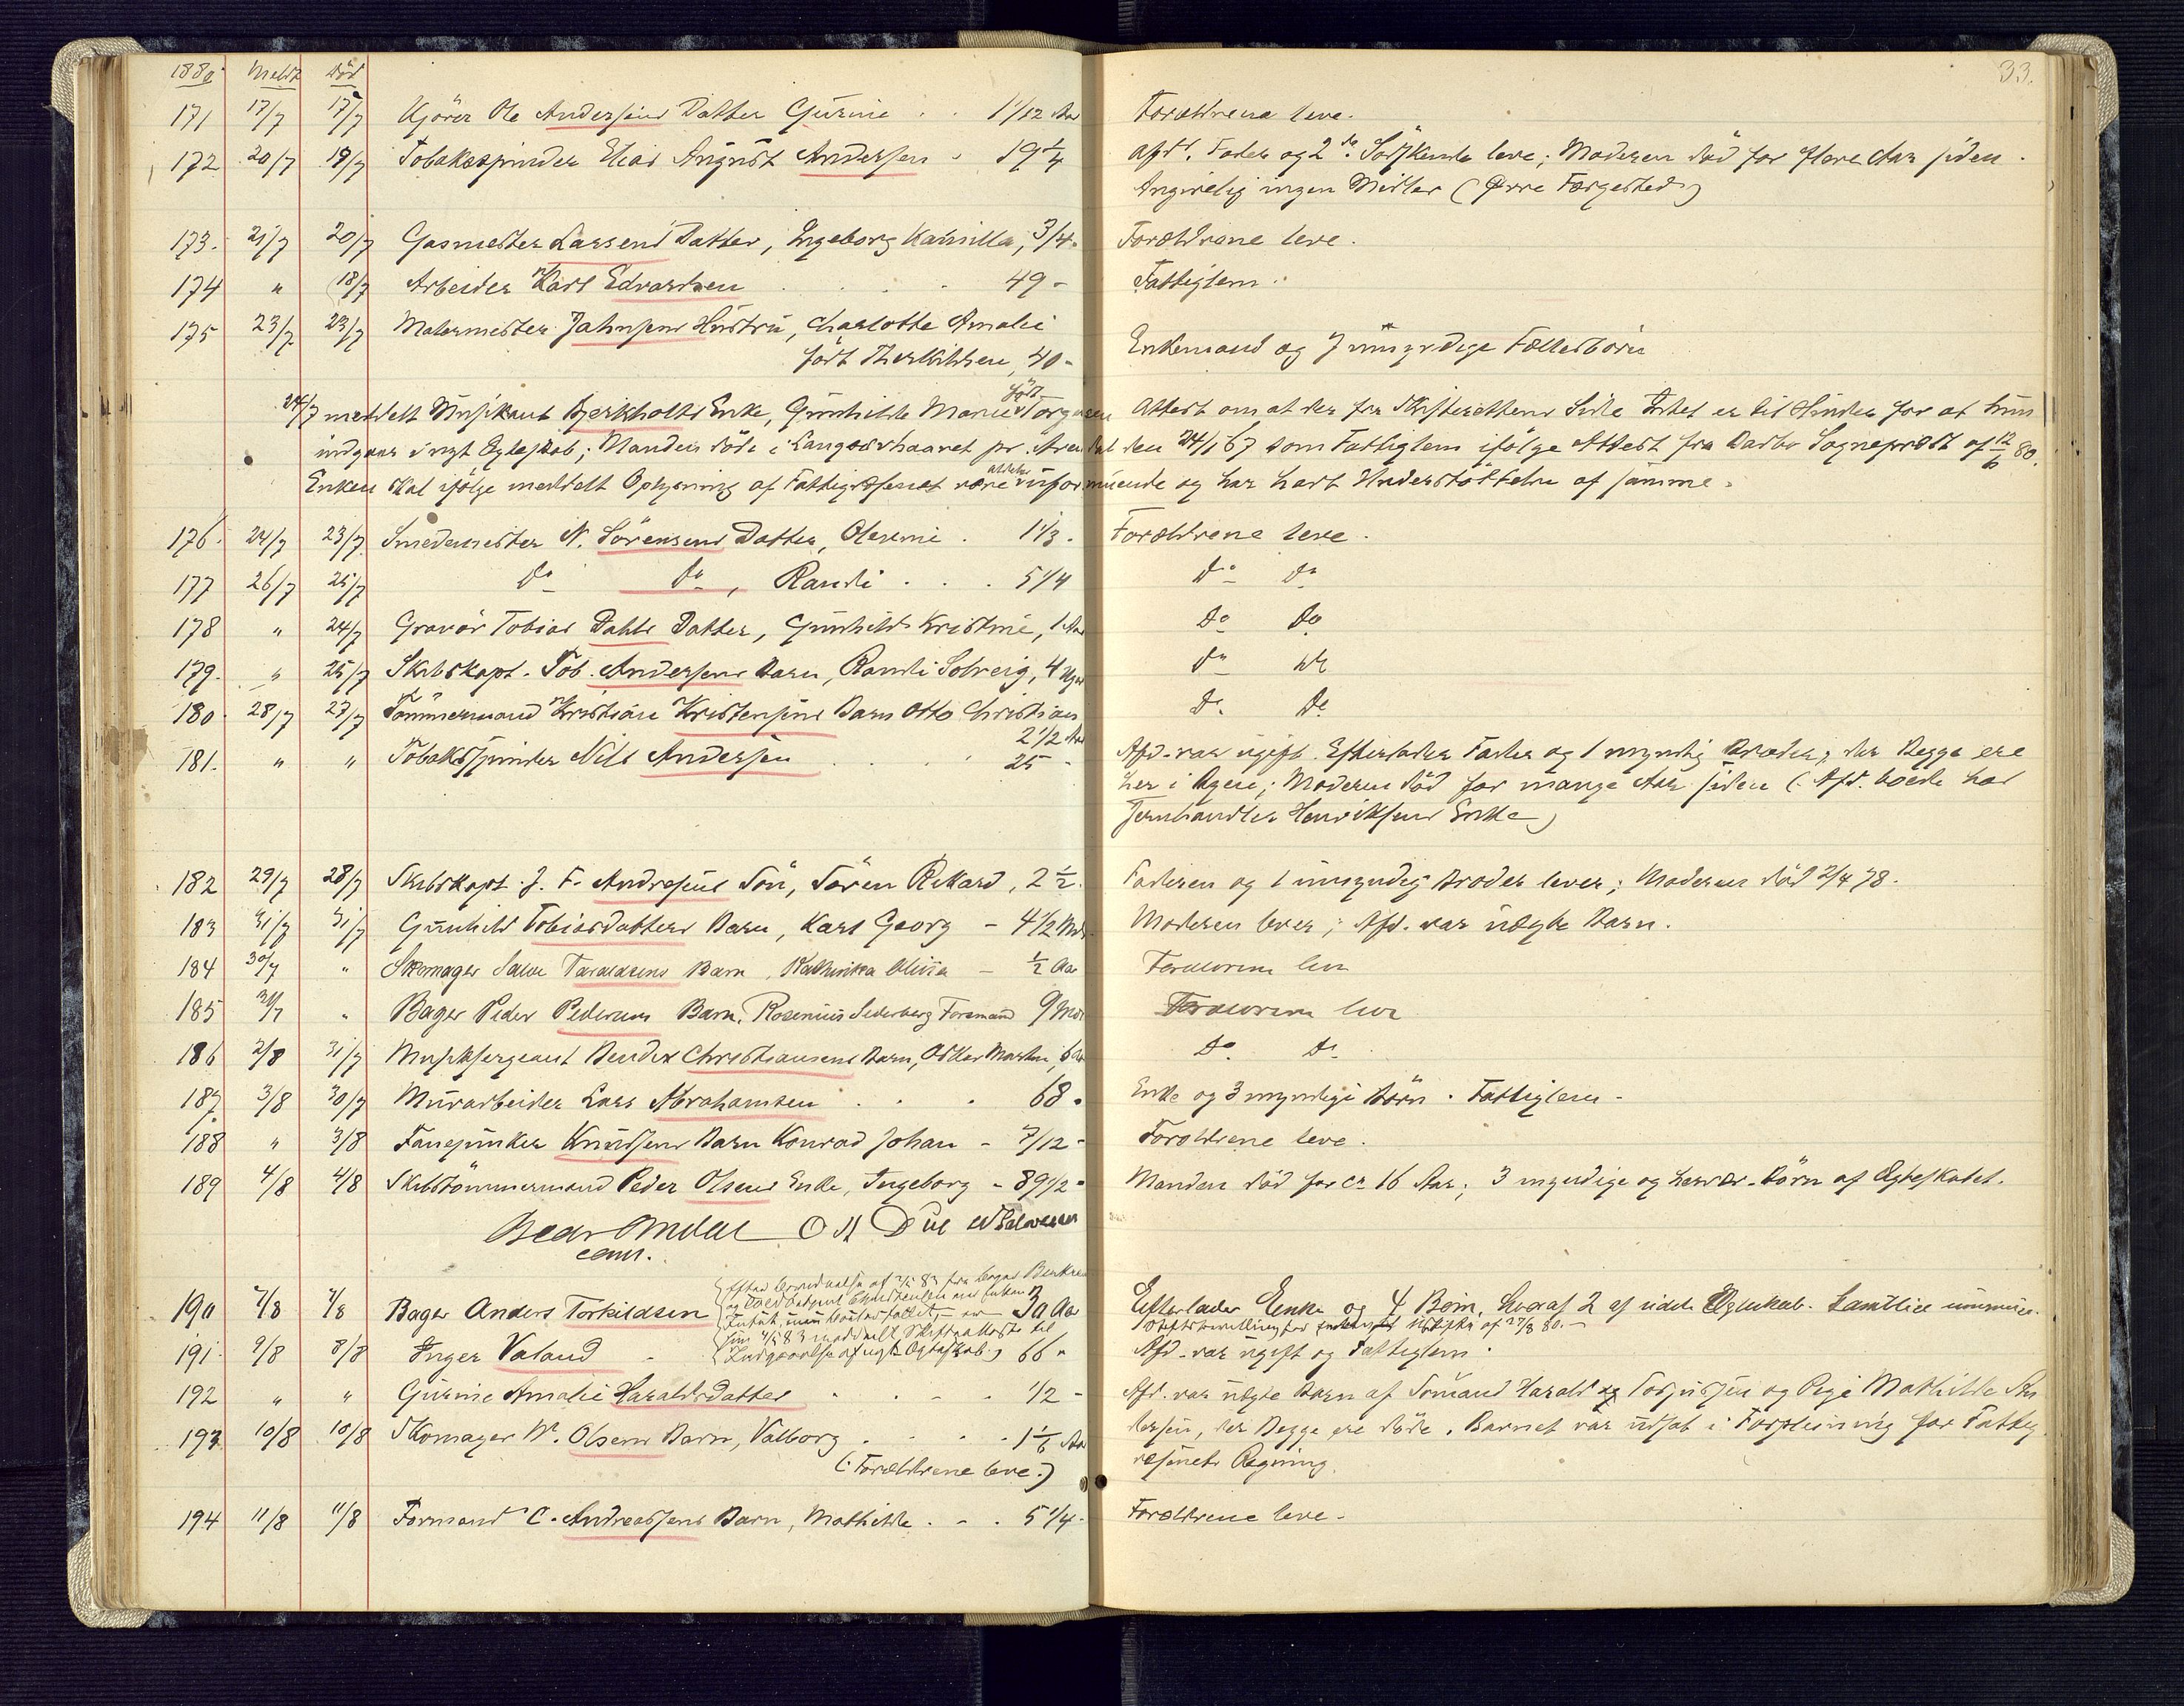 1880 Meldt Död
33.
171 17/7 17/7 Kjörer Ole Andersens Datter Gurine . . 1 1/12 Aar Forældrene leve.
172 20/7 19/7 Tobaksspinder Elias August Andersen - 19 1/4 Afd. Fader og 2de Söskende leve; Moderen död for flere Aar siden.
Angivelig ingen Midler (Övre Færgested)
173. 21/7 20/7 Gasmester Larsens Datter, Ingeborg Kamilla, 3/4 - Forældrene leve.
174 " 18/7 Arbeider Karl Edvardsen . . . 49 - Fattiglem.
175 23/7 23/7 Malermester Jahnsens Hustru, Charlotte Amalie
födt Therkildsen, 40 - Enkemand og 7 umyndige Fællesbörn
24/7 meddelt Musikant Bjerkholts Enke, Gunhilde Marie födt Torgersen Attest om at der fra Skifterettens Side Intet er til Hinder for at hun
indgaar i nyt Ægteskab; Manden döde i Langsævhaavet pr. Arendal den 24/1 67 som Fattiglem ifölge Attest fra Sogneprest af 12/6 80.
Enken skal ifölge meddelt Oplysning af Fattigvæsenet være aldeles uformuende og har havt Understöttelse af samme.
176. 24/7 23/7 Smedemester N. Sörensens Datter, Olemine . 1 1/3 . Forældrene leve.
177 26/7 25/7 do do, Randi . . . 5 1/4 do do
178 " 24/7 Gravör Tobias Dahls Datter, Gunhild Kristine, 1 Aar Do Do
179. " 25/7 Skibskapt. Tob. Andersens Barn, Randi Solveig, 4 Uger do do
180. 28/7 27/7 Tömmermand Kristian Kristensens Barn Otto Christian Do Do
2 1/2 Aar
181. " " Tobaksspinder Nils Andersen . . . 25 - Afd. var ugift. Efterlader Fader og 1 myndig Broder, der Begge ere
her i Byen; Moderen död for mange Aar siden (: Afd. boede hos
Jernhandler Henriksens Enke)
182 29/7 28/7 Skibskapt. J. F. Andresens Sön, Sören Rikard, 2 1/2. Faderen og 1 umyndig Broder lever; Moderen död 2/4 78.
183 31/7 31/7 Gunhild Tobiasdatters Barn, Karl Georg - 4 1/2 Mdr. Moderen lever; Afd. var uægte Barn.
184 30/7 " Skomager Salve Taraldsens Barn, Kathinka Elisa - 1/2 Aar Forældrene leve
185 31/7 " Bager Peder Pedersens Barn, Rosenius Sederberg Formand 9 Mdr Forældrene leve
186 2/8 31/7 Musiksergeant Bendix Christiansens Barn, Oskar Martin, 6 Aar Do Do.
187 3/8 30/7 Murarbeider Lars Abrahamsen . . . 68 . Enke og 3 myndige Börn. Fattiglem.
188 " 3/8 Fanejunker Knudsens Barn Konrad Johan - 7/12 - Forældrene leve.
189 4/8 4/8 Skibstömmermand Peder Olsens Enke, Ingeborg - 89 1/2 - Manden död for ca 16 Aar; 3 myndige og nærvær. Börn af Ægteskabet.
const.
190 7/8 7/8 Bager Anders Torkildsen 30 Aar Efterlader Enke og 4 Börn, hvoraf 2 af sidste Ægteskab. Samtlige umyndige.
191. 9/8 8/8 Inger Valand - 66 - Afd. var ugift og Fattiglem.
Indgaaelse af nyt Ægteskab.
192 " " Gurine Amalie Haraldsdatter . . . 1/2 - Afd. var uægte Barn af Sömand Harald Torjussen og Pige Mathilde An
193 10/8 10/8 Skomager W. Olsens Barn, Valborg . . . 1 1/6 Aar dersen, der Begge ere döde. Barnet var udsat i Forpleining for Fattig
(: Forældrene leve.) væsenets Regning.
194 11/8 11/8 Formand C. Andreassens Barn, Mathilde . - . 5 1/4 - Forældrene leve.